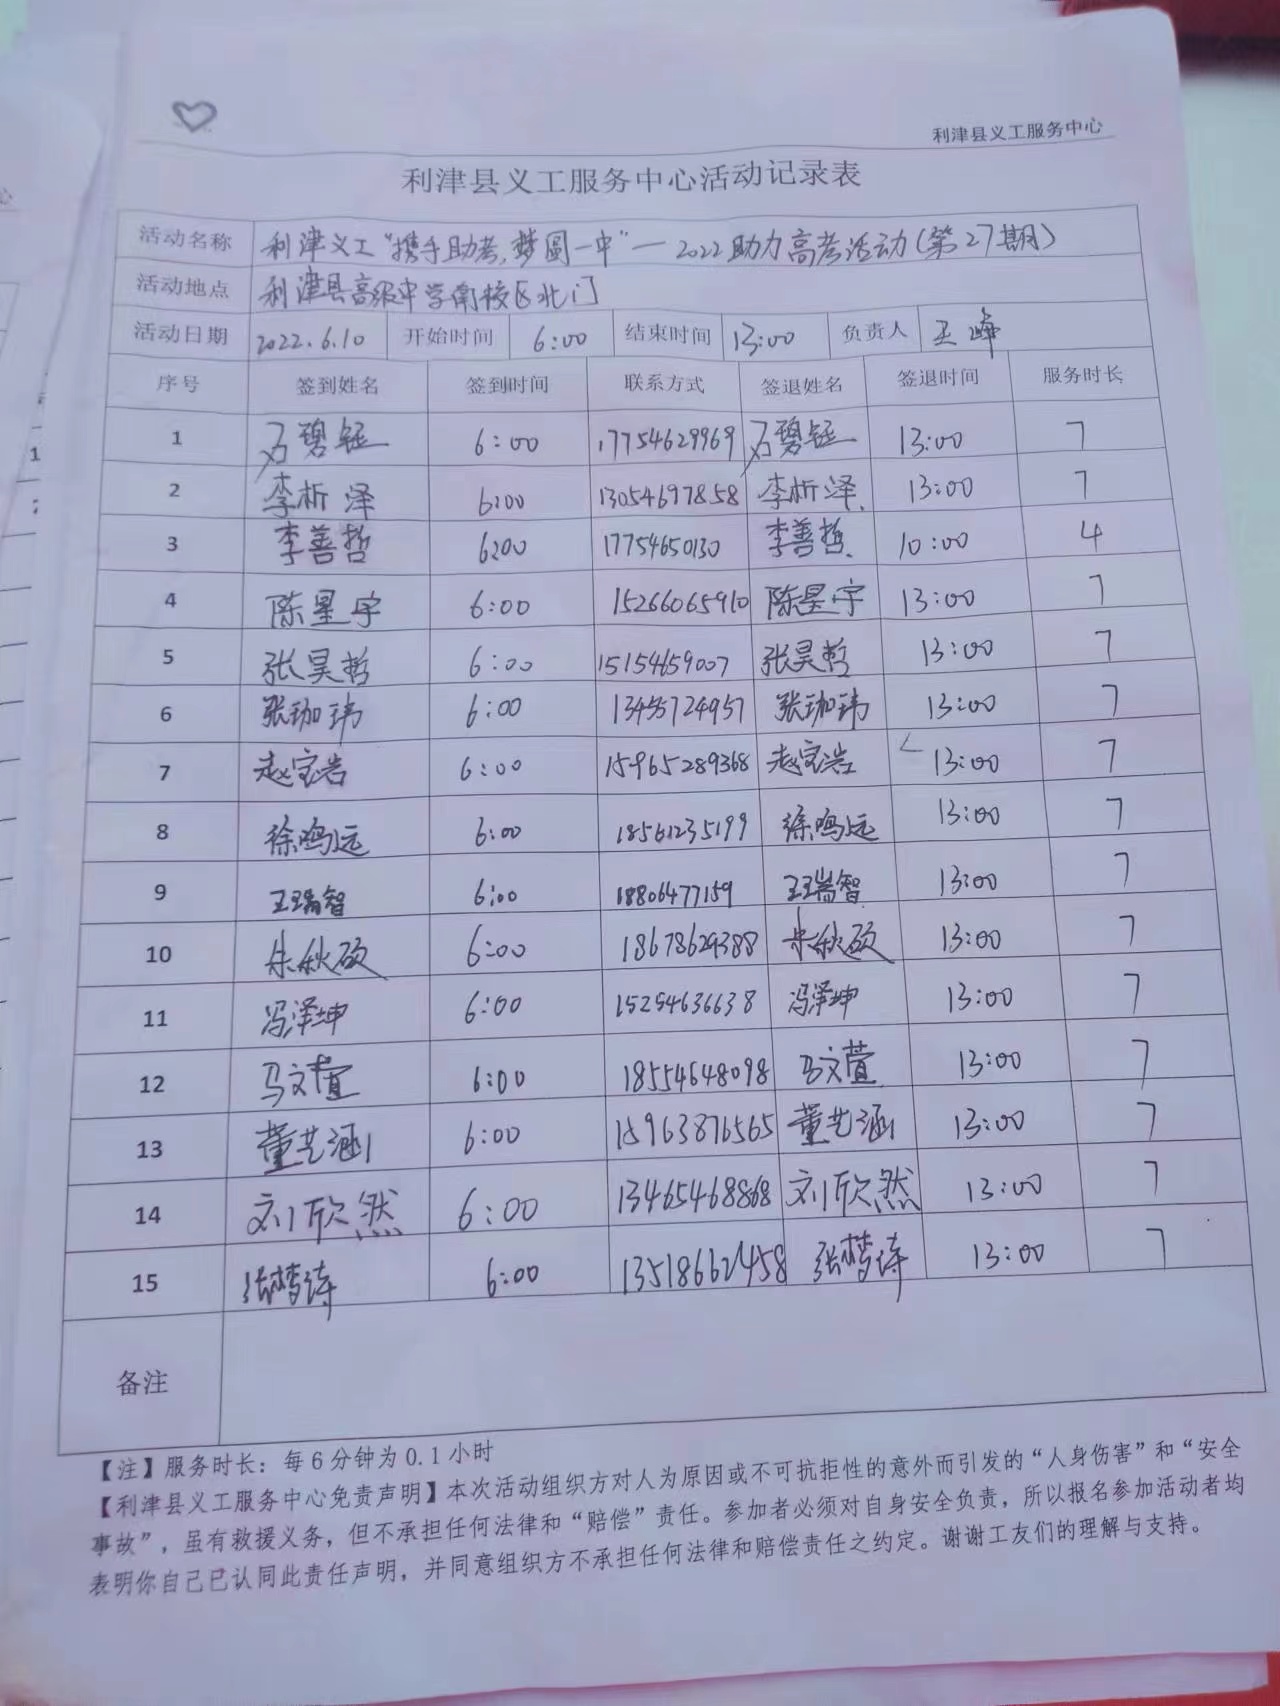 利津县义工服务中心
利津县义工服务中心活动记录表
活动名称 利津义工“携手助考,梦圆一中”—2022助力高考活动(第27期)
活动地点 利津县高级中学南校区北门
活动日期 2022.6.10 开始时间 6:00 结束时间 13:00 负责人 王峰
序号 签到姓名 签到时间 联系方式 签退姓名 签退时间 服务时长
1 石碧钰 6:00 17754629969 石碧钰 13:00 7
2 李析泽 6:00 13054697858 李析泽 13:00 7
3 李善哲 6:00 17754650130 李善哲 10:00 4
4 陈星宇 6:00 15266065910 陈星宇 13:00 7
5 张昊哲 6:00 15154659007 张昊哲 13:00 7
6 张珈玮 6:00 13455724957 张珈玮 13:00 7
7 赵宝岩 6:00 15965289368 赵宝岩 13:00 7
8 徐鸣远 6:00 18561235199 徐鸣远 13:00 7
9 王瑞智 6:00 18806477159 王瑞智 13:00 7
10 朱秋硕 6:00 18678629388 朱秋硕 13:00 7
11 冯泽坤 6:00 15254636638 冯泽坤 13:00 7
12 马文萱 6:00 18554648098 马文萱 13:00 7
13 董艺涵 6:00 15963876565 董艺涵 13:00 7
14 刘欣然 6:00 13465468868 刘欣然 13:00 7
15 张梦诗 6:00 13518662458 张梦诗 13:00 7
备注
【注】服务时长：每6分钟为0.1小时
【利津县义工服务中心免责声明】本次活动组织方对人为原因或不可抗拒性的意外而引发的“人身伤害”和“安全
事故”，虽有救援义务，但不承担任何法律和“赔偿”责任。参加者必须对自身安全负责，所以报名参加活动者均
表明你自己已认同此责任声明，并同意组织方不承担任何法律和赔偿责任之约定。谢谢工友们的理解与支持。